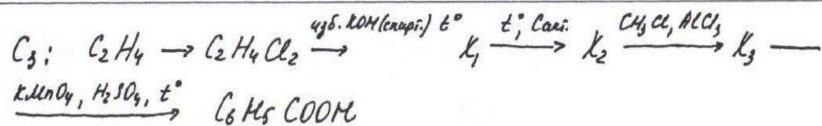 C3: C2H4 → C2H4Cl2 —изб. KOH(спирт.) t°→ X1 —t°, Cакт.→ X2 —CH3Cl, AlCl3→ X3 —
—KMnO4, H2SO4, t°→ C6H5COOH